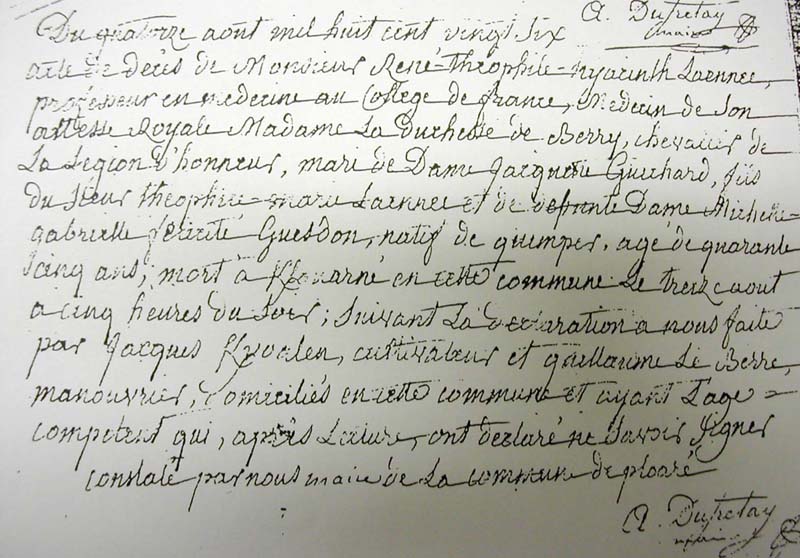 Du quatorze aout mil huit cent vingt six
A. Dufretay
maire
acte de décès de Monsieur René-théophile-hyacinth Laennec,
professeur en medecine au College de france, Medecin de Son
altesse Royale Madame La Duchesse de Berry, chevalier de
La Legion d'honneur, mari de Dame Jacquette Guichard, fils
du Sieur théophile-marie Laennec et de defunte Dame Michelle-
gabrielle félicité Guesdon, natif de quimper, agé de quarante
cinq ans, mort à Klouarné en cette commune Le treize aout
a cinq heures du Soir; Suivant La declaration a nous faite
par Jacques Kvoalen, cultivateur et guillaume Le Berre,
manouvrier, domiciliés en cette commune et ayant L'age =
competent qui, après Lecture, ont declaré ne Savoir Signer
constaté par nous maire de La commune de ploaré
A. Dufretay
maire